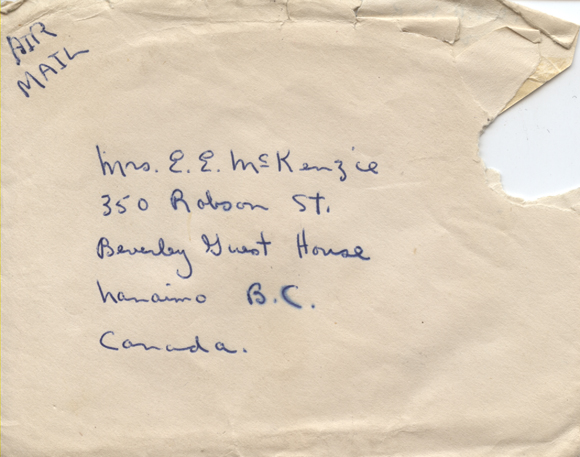 AIR
MAIL
Mrs. E. E. McKenzie
350 Robson St.
Beverley Guest House
Nanaimo B.C.
Canada.